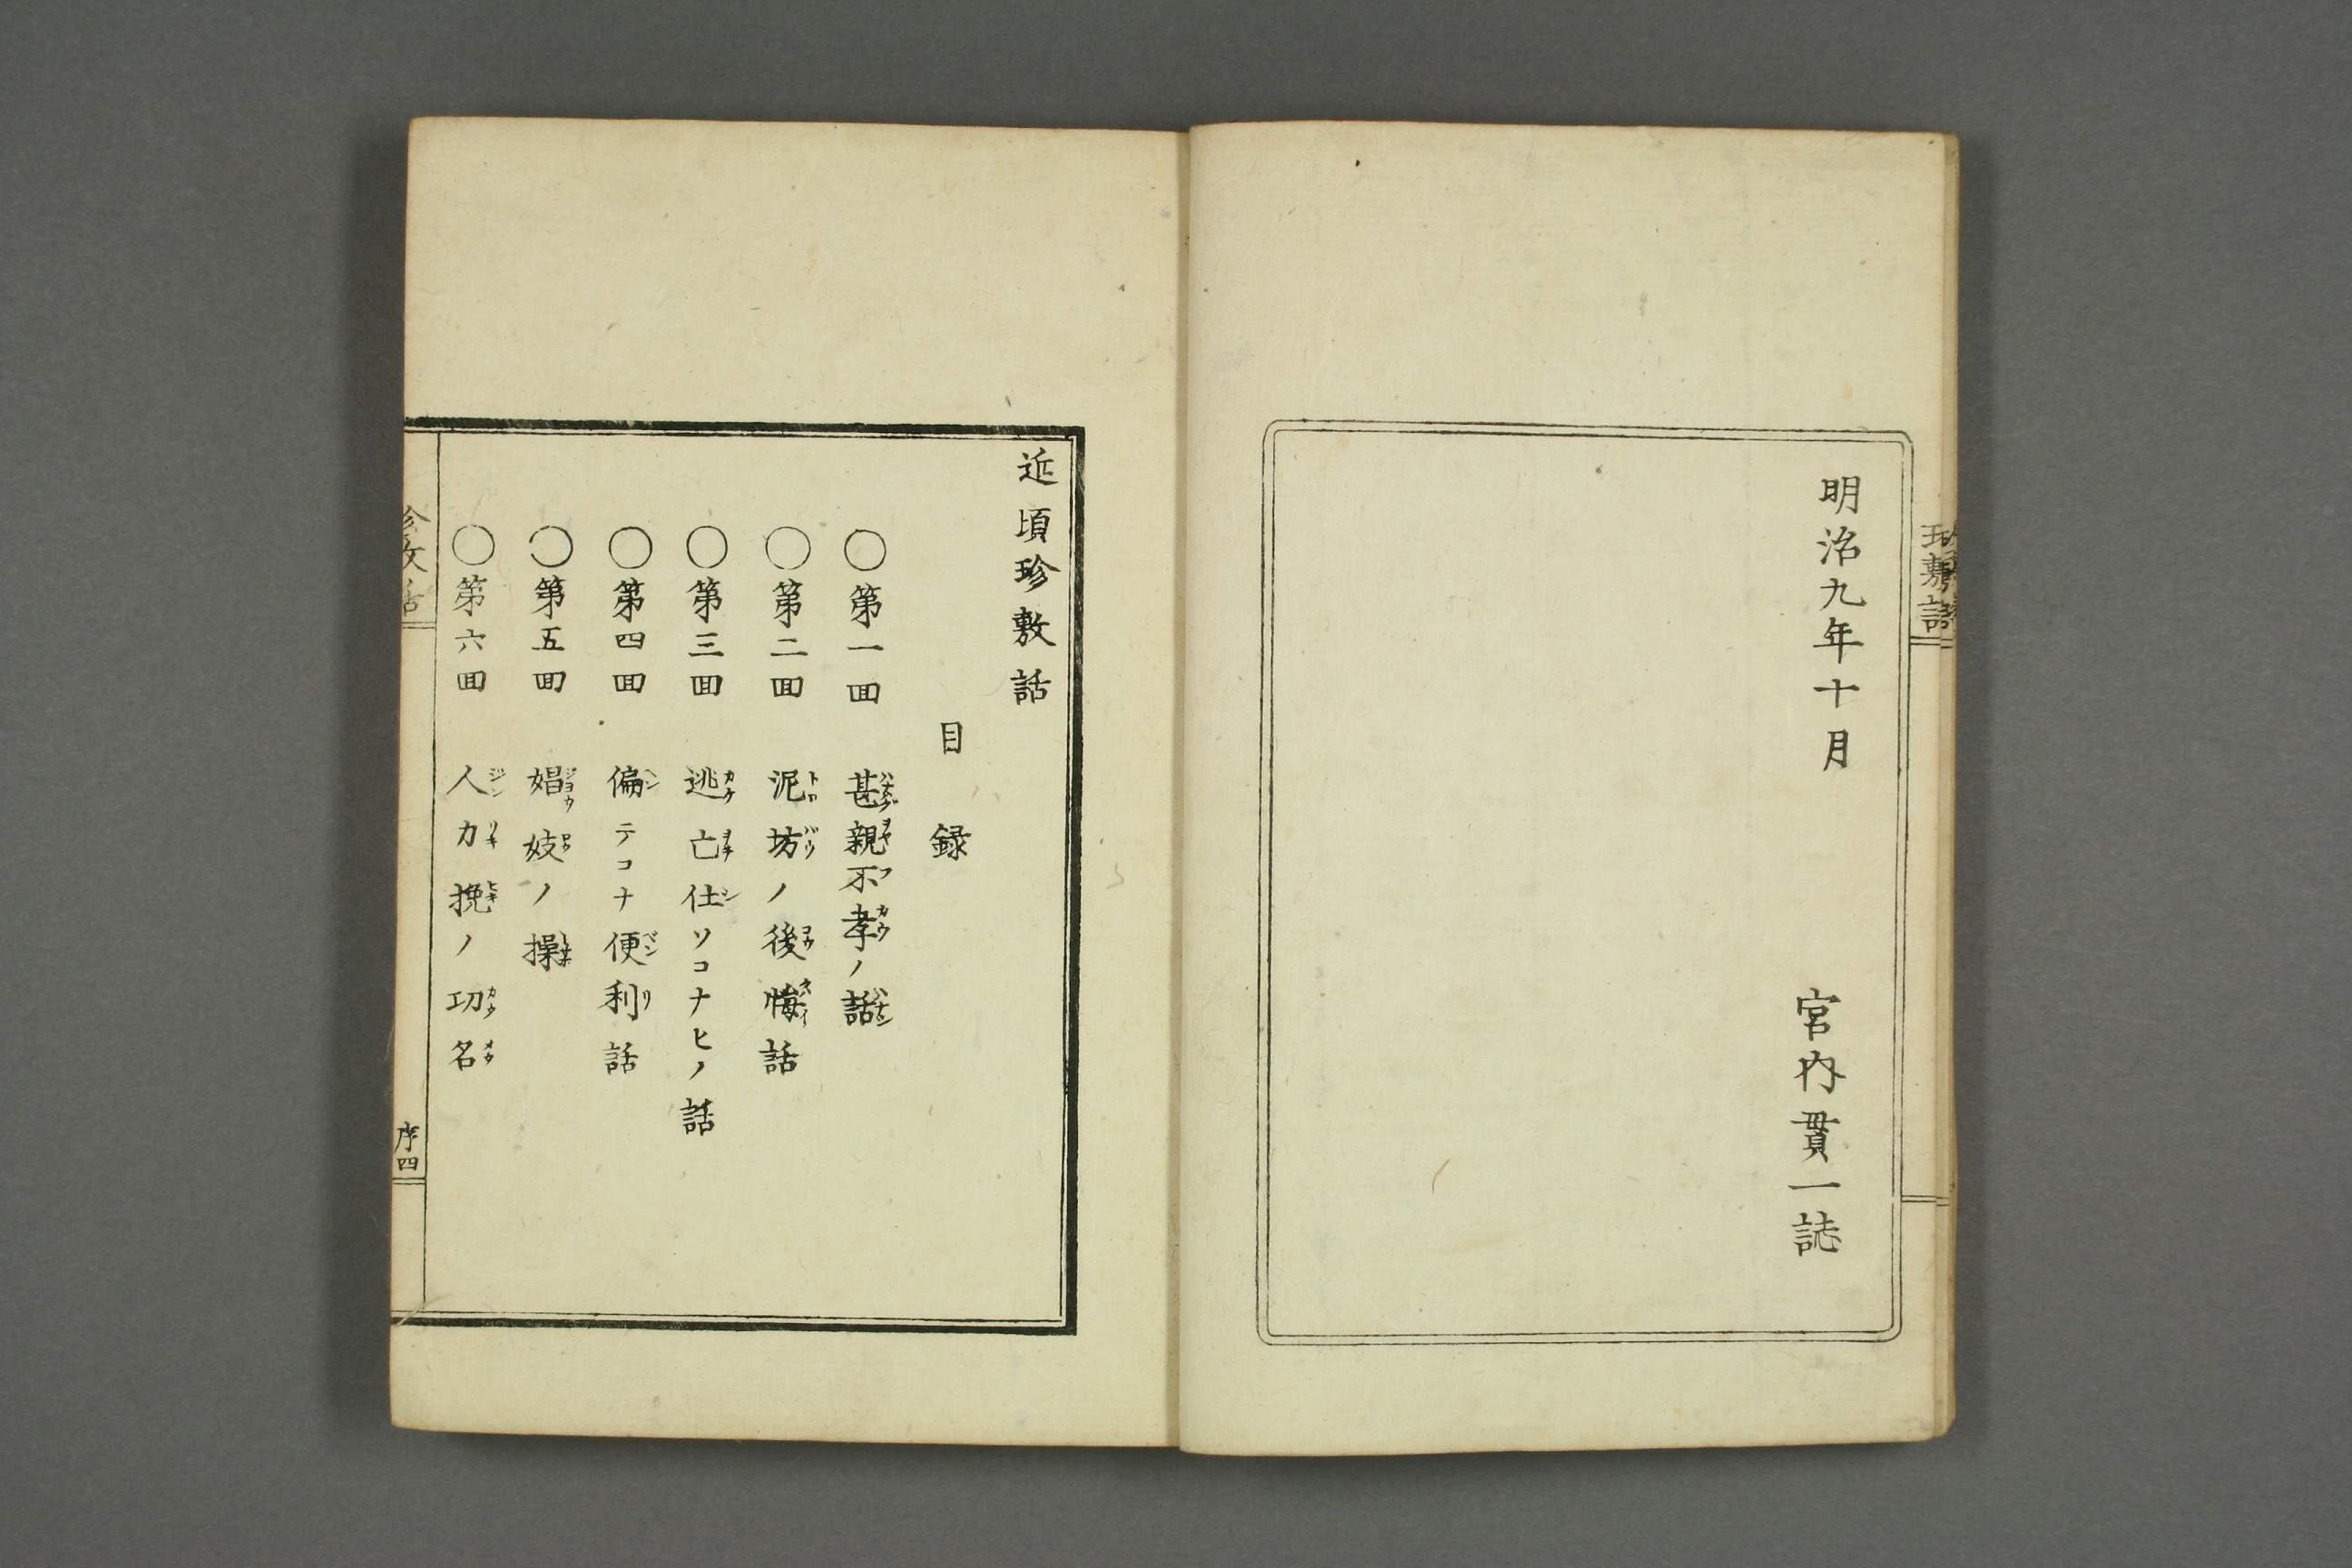 明治九年十月
宮内貫一誌
近頃珍敷話
目録
〇第一回 甚親不孝ノ話
〇第二回 泥坊ノ後悔話
〇第三回 逃亡仕ソコナヒノ話
〇第四回 偏テコナ便利話
〇第五回 娼妓ノ操
〇第六回 人力挽ノ功名
序四